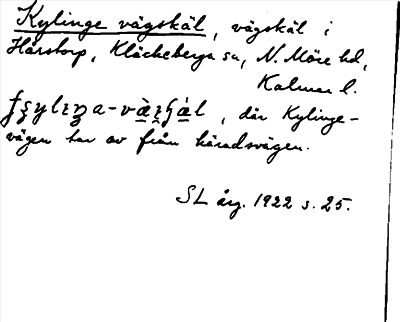 Kylinge vägskäl, vägskäl i
Harstorp, Kläckeberga sn, N. Möre hd,
Kalmar l.
, där Kylinge-
vägen tar av från häradsvägen.
SL årg. 1922 s. 25.